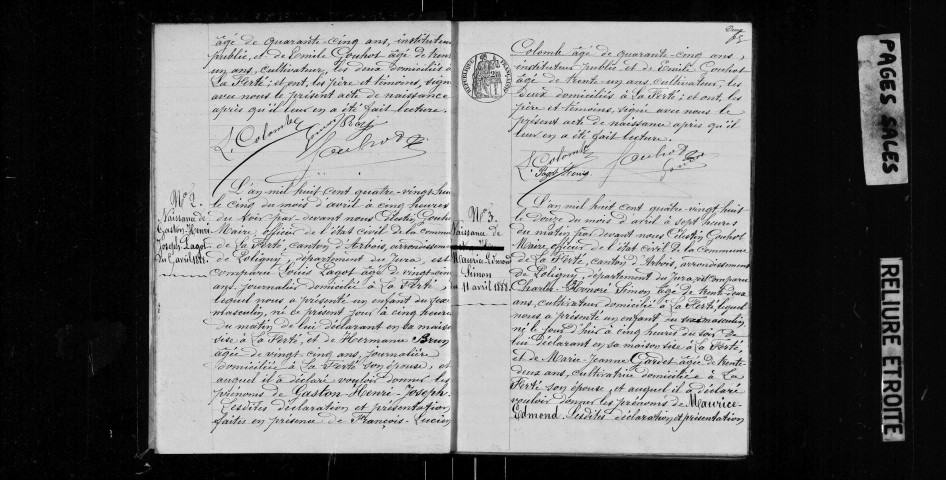 âgé de quarante-cinq ans, instituteur
public, et de Emile Gouhot âgé de trente
un ans, cultivateur, les deux domiciliés à
La Ferté; et ont, les père et témoins, signé
avec nous le présent acte de naissance
après qu'il leur en a été fait lecture.
L. Colombe
Gouhot
No 2.
Naissance de
Gaston-Henri-
Joseph Pagot
du 5 avril 1888.
L'an mil huit cent quatre-vingt-huit
le cinq du mois d'avril à cinq heures
du soir par-devant nous Célestin Gouhot
Maire, officier de l'état civil de la commune
de La Ferté, canton d'Arbois, arrondissement
de Poligny, département du Jura, est
comparu Louis Pagot âgé de vingt-cinq
ans, journalier domicilié à La Ferté,
lequel nous a présenté un enfant du sexe
masculin, né le présent jour à cinq heures
du matin de lui déclarant en sa maison
sise à La Ferté, et de Hermance Brun
âgée de vingt-cinq ans, journalière
domiciliée à La Ferté son épouse, et
auquel il a déclaré vouloir donner les
prénoms de Gaston-Henri-Joseph.
Lesdites déclaration et présentation
faites en présence de François-Lucien
65
RÉPUBLIQUE FRANÇAISE
Colombe âgé de quarante-cinq ans,
instituteur public et de Emile Gouhot
âgé de trente-un ans cultivateur, les
deux domiciliés à La Ferté; et ont, les
père et témoins, signé avec nous le
présent acte de naissance après qu'il
leur en a été fait lecture.
L. Colombe
Gouhot
L. Pagot
No 3.
Naissance de
Maurice-Edmond
Simon
du 11 avril 1888.
L'an mil huit cent quatre-vingt-huit
le douze du mois d'avril à sept heures
du matin par devant nous Célestin Gouhot
Maire, officier de l'état civil de la commune
de La Ferté, canton d'Arbois, arrondissement
de Poligny, département du Jura, est comparu
Charles-Honoré Simon âgé de trente-deux
ans, cultivateur domicilié à La Ferté lequel
nous a présenté un enfant du sexe masculin,
né le jour d'hier à cinq heures du soir de
lui déclarant en sa maison sise à La Ferté,
et de Marie-Jeanne Gardet âgée de trente-
deux ans, cultivatrice domiciliée à La
Ferté son épouse, et auquel il a déclaré
vouloir donner les prénoms de Maurice-
Edmond. Lesdites déclaration et présentation
PAGES SALES
RELIURE ETROITE